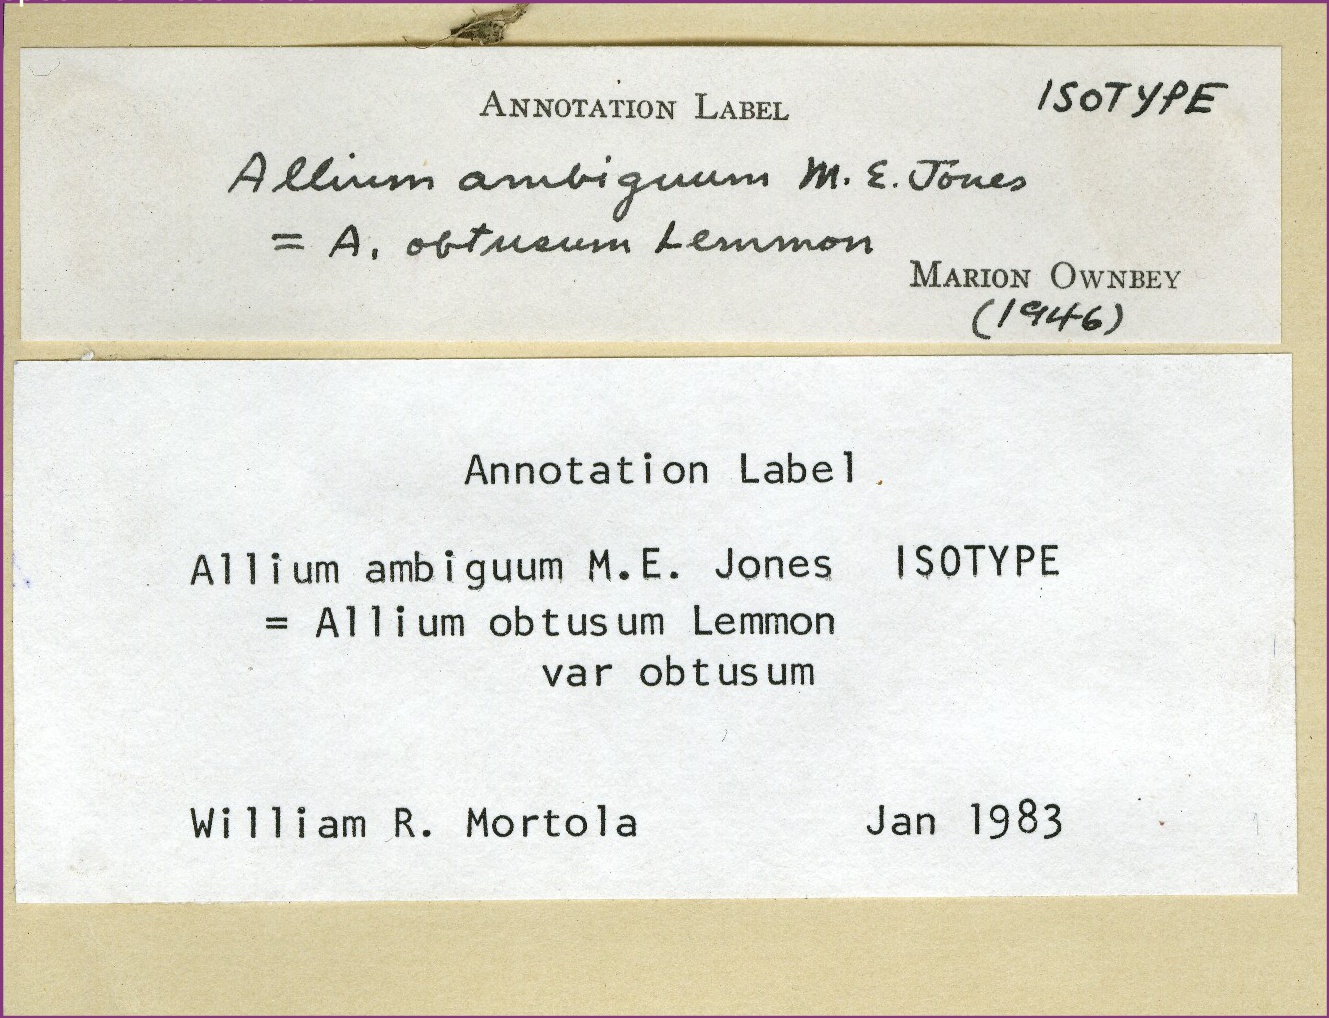 ANNOTATION LABEL ISOTYPE
Allium ambiguum M. E. Jones
= A. obtusum Lemmon
MARION OWNBEY
(1946)
Annotation Label
Allium ambiguum M.E. Jones ISOTYPE
= Allium obtusum Lemmon
var obtusum
William R. Mortola Jan 1983